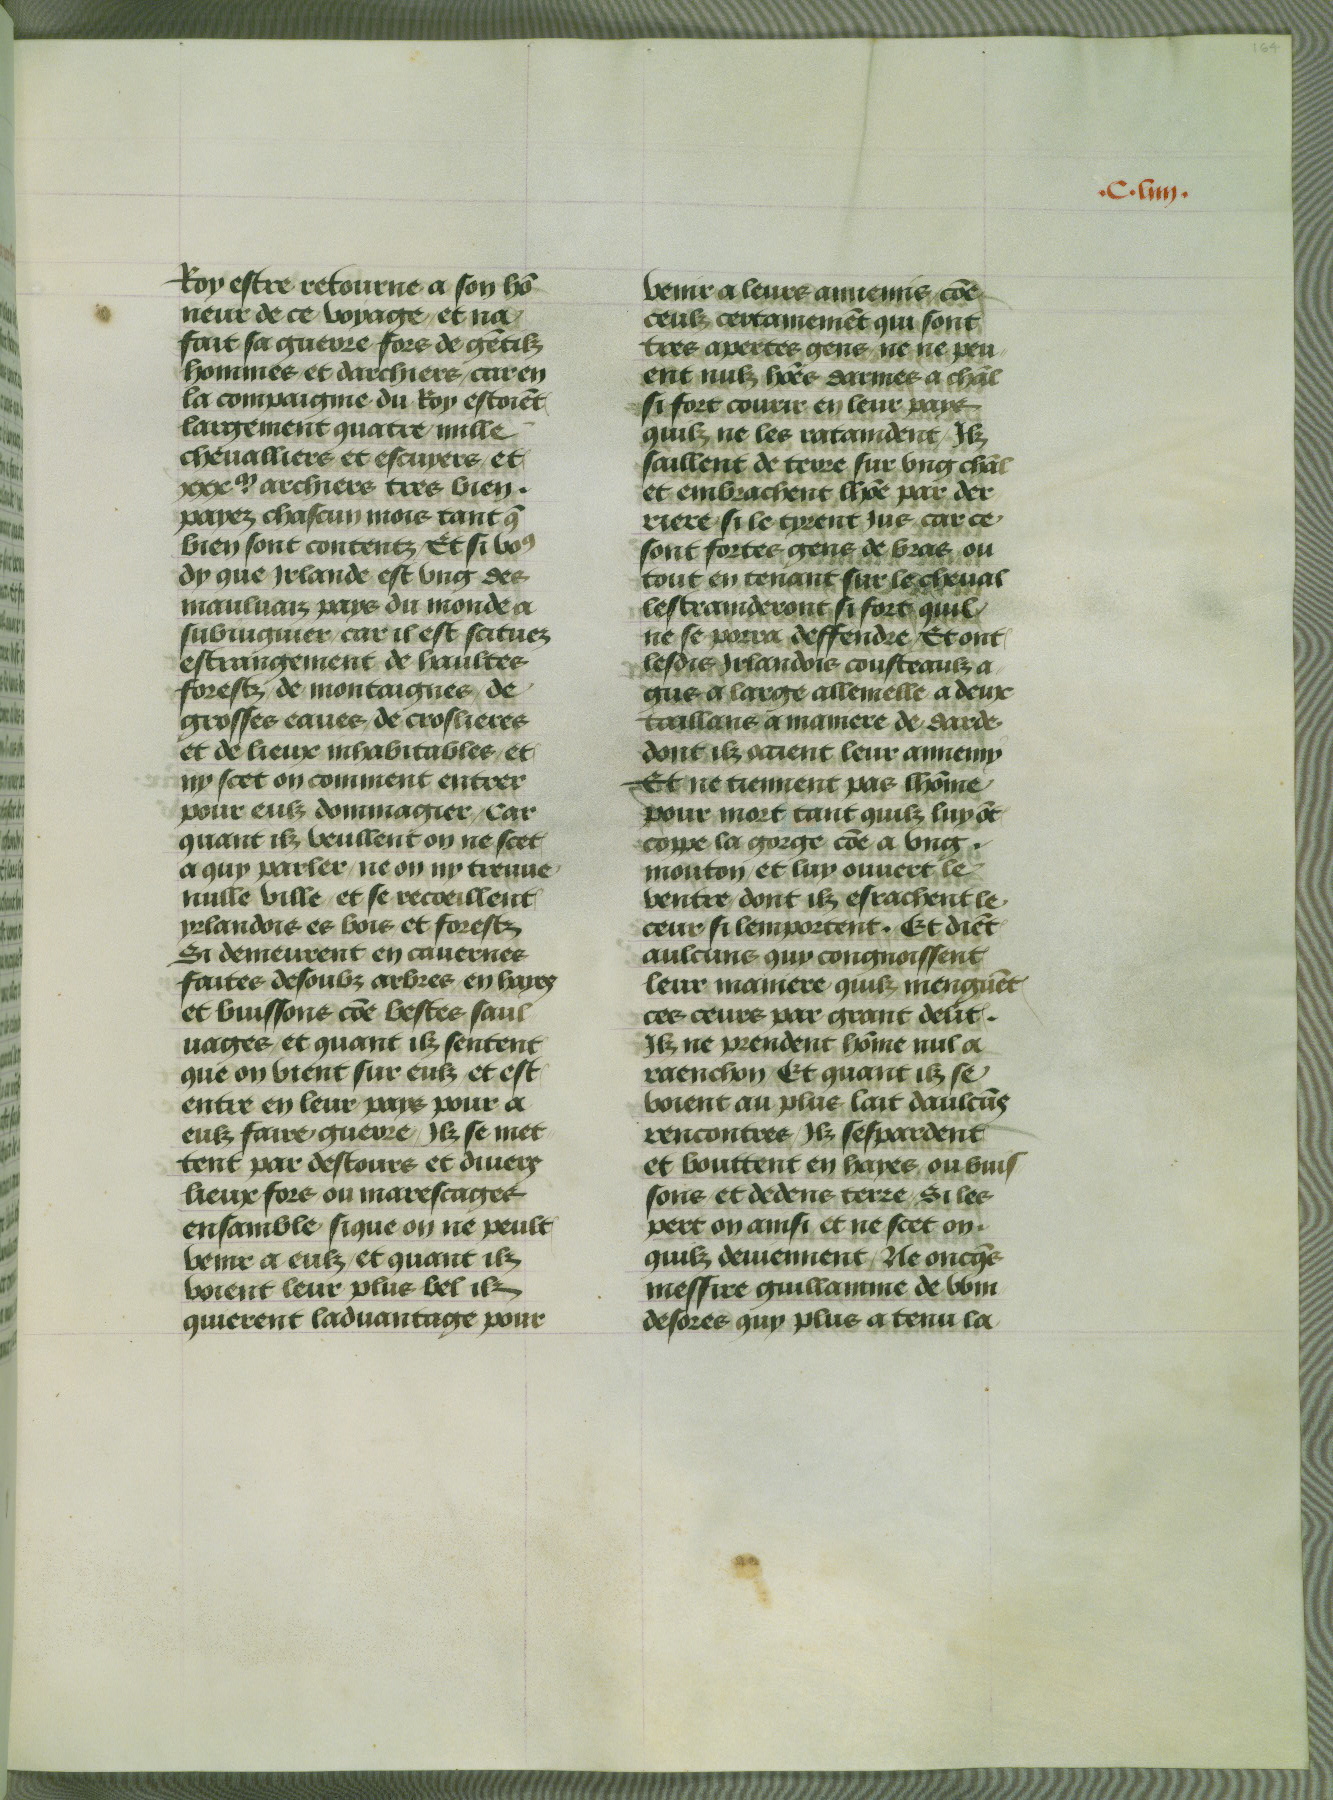 164
.C.liiii.
Roy estre retourne a son hō
neur de ce voyage / et na
fait sa guerre fors de gētilz
hommes et darchiers / car en
la compaignie du Roy estoiēt
largement quatre mille
chevalliers et escuyers / et
xxxm archiers tres bien .
payez chascun mois tant q̄
bien sont contentz / Et si vo9
dy que Irlande est vng des
mauluaiz pays du monde a
subiuguier / car il est scituez
estrangement de haultes
forestz / de montaignes / de
grosses eaues / de croslieres
et de lieux inhabitables / et
ny scet on comment entrer
pour eulz dommagier / Car
quant ilz veullent on ne scet
a quy parler / ne on ny treuue
nulle ville / et se recoeillent
yrlandois es bois et forestz
Si demeurent en cauernes
faites desoubz arbres en hayes
et buissons cōe bestes saul
uages / et quant ilz sentent
que on vient sur eulz et est
entre en leur pays pour a
eulz faire guerre / Ilz se met
tent par destours et diuers
lieux fors ou marescages
ensamble / sique on ne peult
venir a eulz / et quant ilz
voient leur plus bel ilz
quierent laduantage pour
venir a leurs annemis / cōe
ceulz certainemēt qui sont
tres apertes gens / ne ne peu
ent nulz hōes darmes a chāl
si fort courir en leur pays
quilz ne les rataindent / Ilz
saillent de terre sur vng chāl
et embrachent lhōe par der
riere / si le tyrent Jus / car ce
sont fortes gens de bras / ou
tout en tenant sur le cheual
lestrainderont si fort quil
ne se porra deffendre / Et ont
lesdis Irlandois cousteaulz a
gus a large allemelle a deux
taillans a maniere de darde
dont ilz ocient leur annemy
Et ne tiennent pas lhōme
pour mort tant quilz luy ōt
coppe la gorge / cōe a vng .
mouton / et luy ouvert le
ventre / dont ilz esrachent le
ceur si lemportent . Et diēt
aulcuns quy congnoissent
leur maniere / quilz menguēt
ces ceurs par grant delit .
Ilz ne prendent hōme nul a
raenchon Et quant ilz se
voient au plus lait daulcūs
rencontres / Ilz sespardent
et bouttent en hayes / ou buis
sons / et dedens terre / Si les
pert on ainsi / et ne scet on .
quilz deuiennent / Ne oncq̄s
messire guillamme de vvin
desores quy plus a tenu la